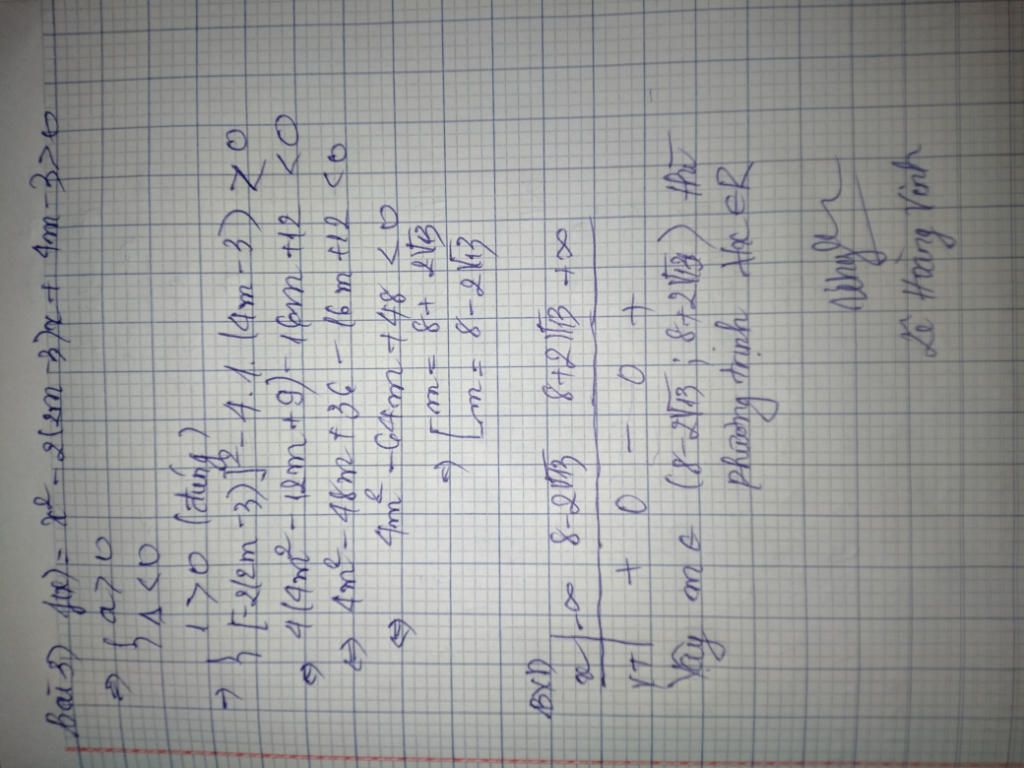 Bài 3) f(x) = x² - 2(2m-3)x + 4m-3>0
⇔ { a>0
Δ<0
→ { 1 >0 (đúng)
[-2(2m-3)]² - 4.1.(4m-3) < 0
⇔ 4(4m² - 12m+9) - 16m+12 <0
⇔ 4m² - 48m + 36 - 16m +12 <0
⇔ 4m² - 64m + 48 <0
⇔ [ m = 8+2√13
[ m = 8-2√13
BXD
x | -∞ 8-2√13 8+2√13 +∞
VT | + 0 - 0 +
Vậy m ∈ (8-2√13 ; 8+2√13) thì
phương trình ∀x ∈R
Lê Hằng Vinh